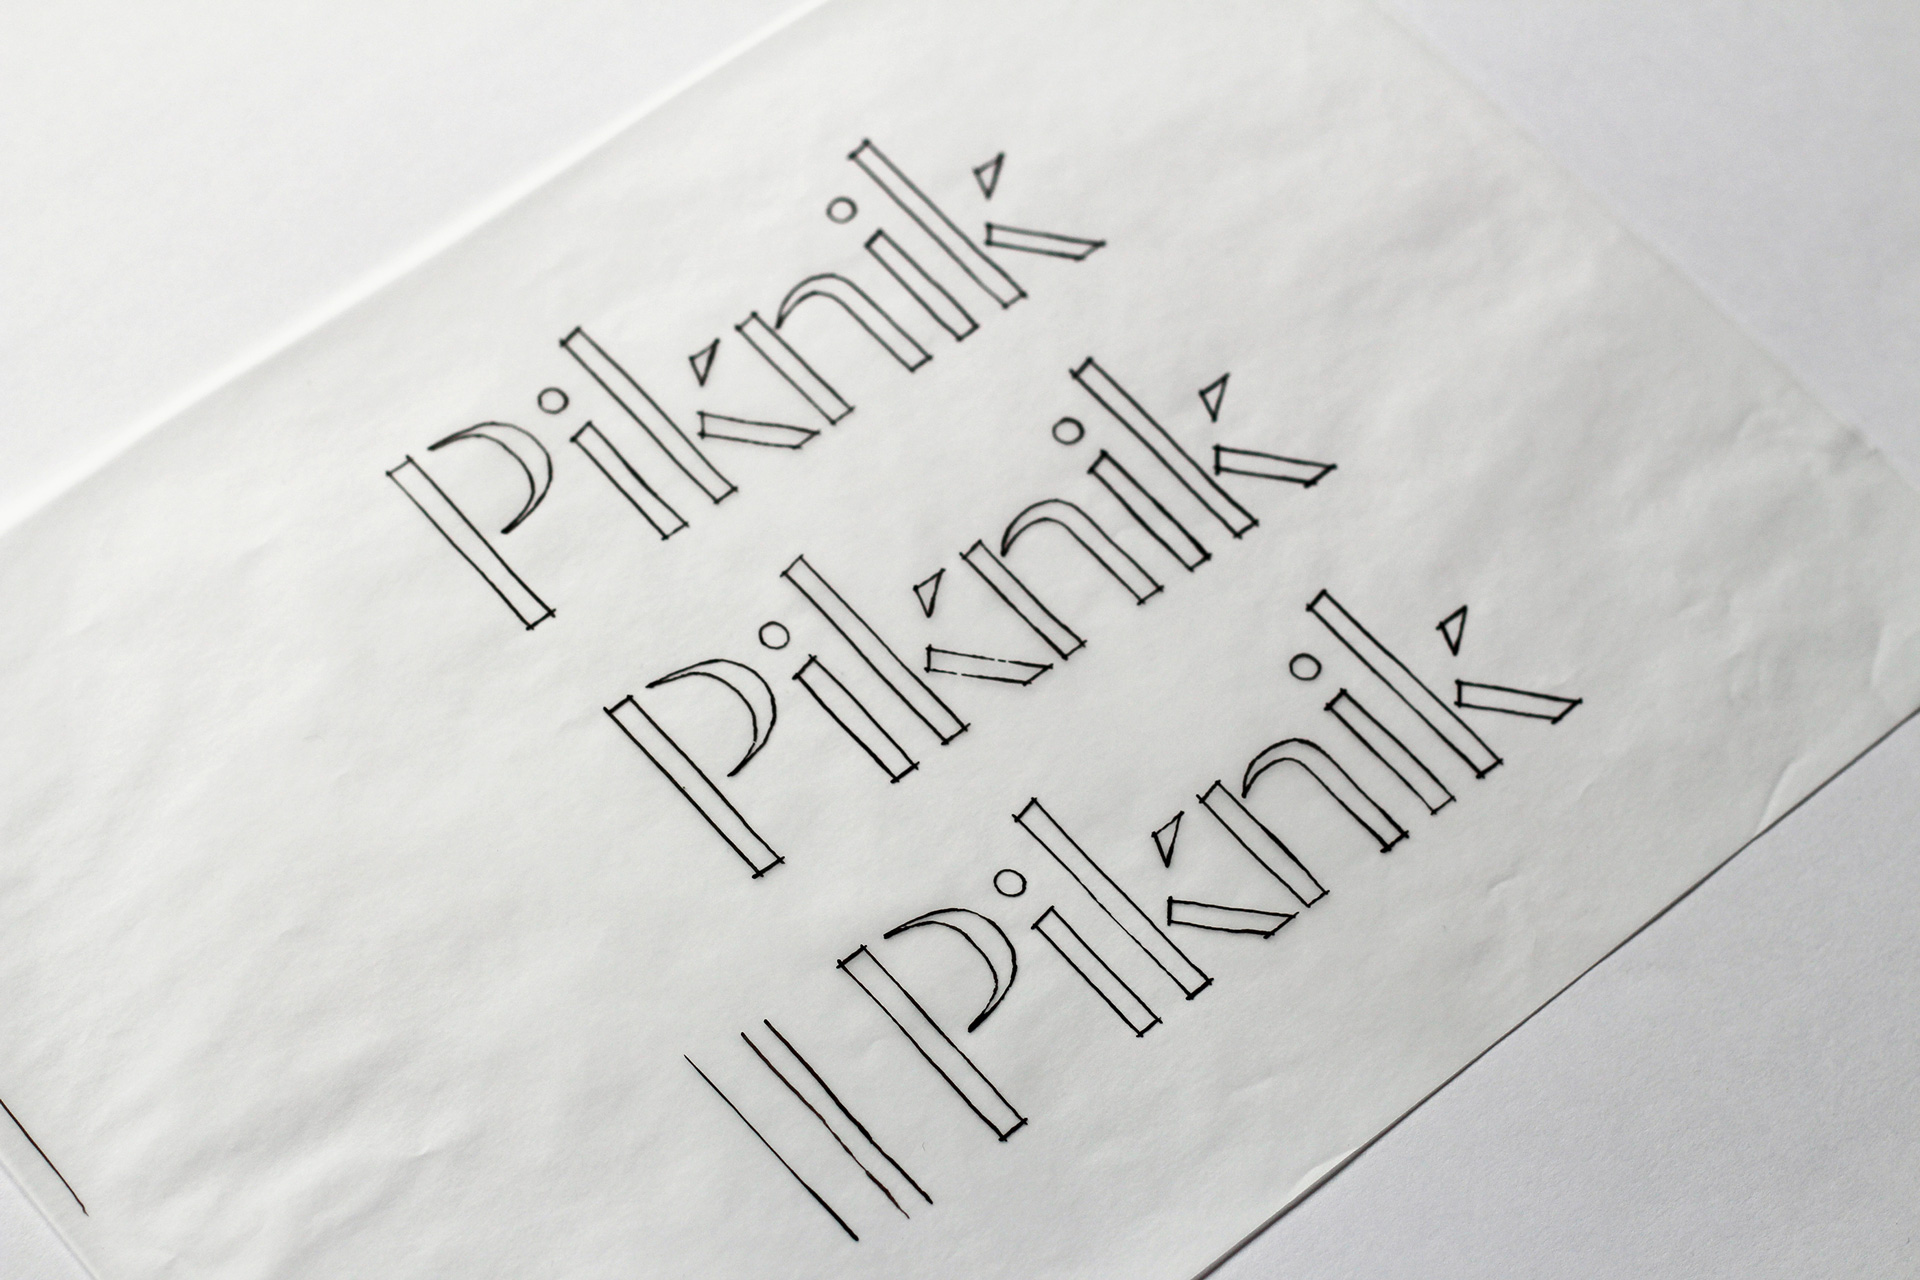 Piknik
Piknik
Piknik